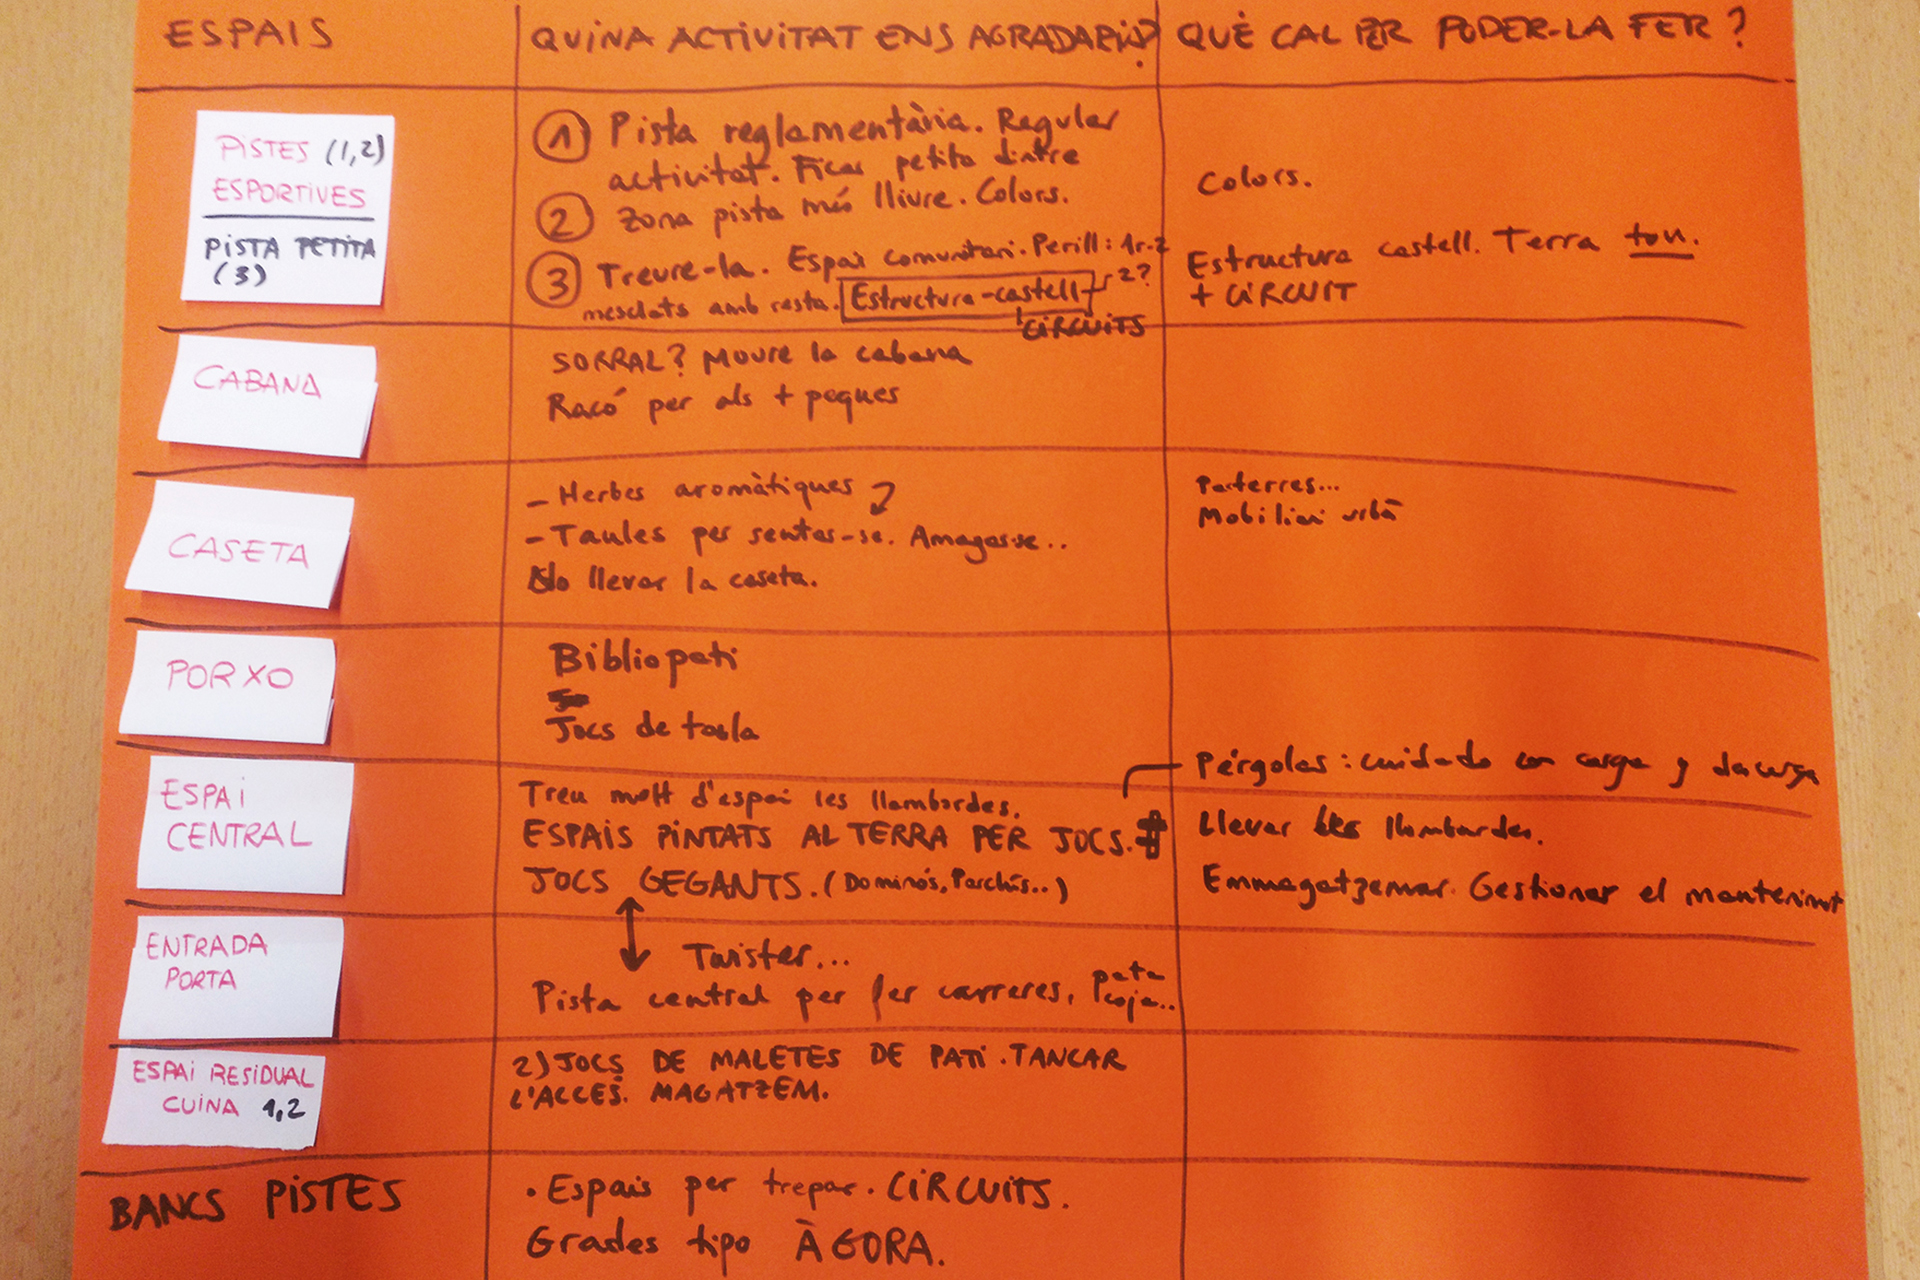 ESPAIS
QUINA ACTIVITAT ENS AGRADARIA?
QUÈ CAL PER PODER-LA FER?
PISTES (1,2)
ESPORTIVES
PISTA PETITA
(3)
1 Pista reglamentària. Regular
activitat. Ficar petita dintre
2 Zona pista més lliure. Colors.
3 Treure-la. Espai comunitari. Perill: 1r-2
mesclats amb resta. Estructura-castell 2?
CIRCUITS
Colors.
Estructura castell. Terra tou.
+ CIRCUIT
CABANA
SORRAL? Moure la cabana
Racó per als + peques
CASETA
- Herbes aromàtiques
- Taules per sentar-se. Amagar-se..
No llevar la caseta.
Parterres...
Mobiliari urbà
PORXO
Bibliopati
Jocs de taula
Pérgoles: cuidado con carga y descarga
ESPAI
CENTRAL
Treu molt d'espai les llambordes.
ESPAIS PINTATS AL TERRA PER JOCS.
JOCS GEGANTS. (Dominós, Parchís..)
Llevar les llambordes.
Emmagatzemar. Gestionar el manteniment
ENTRADA
PORTA
Twister...
Pista central per fer carreres, pata
coja..
ESPAI RESIDUAL
CUINA 1,2
2) JOCS DE MALETES DE PATI. TANCAR
L'ACCÉS. MAGATZEM.
BANCS PISTES
• Espais per trepar. CIRCUITS.
Grades tipo ÀGORA.